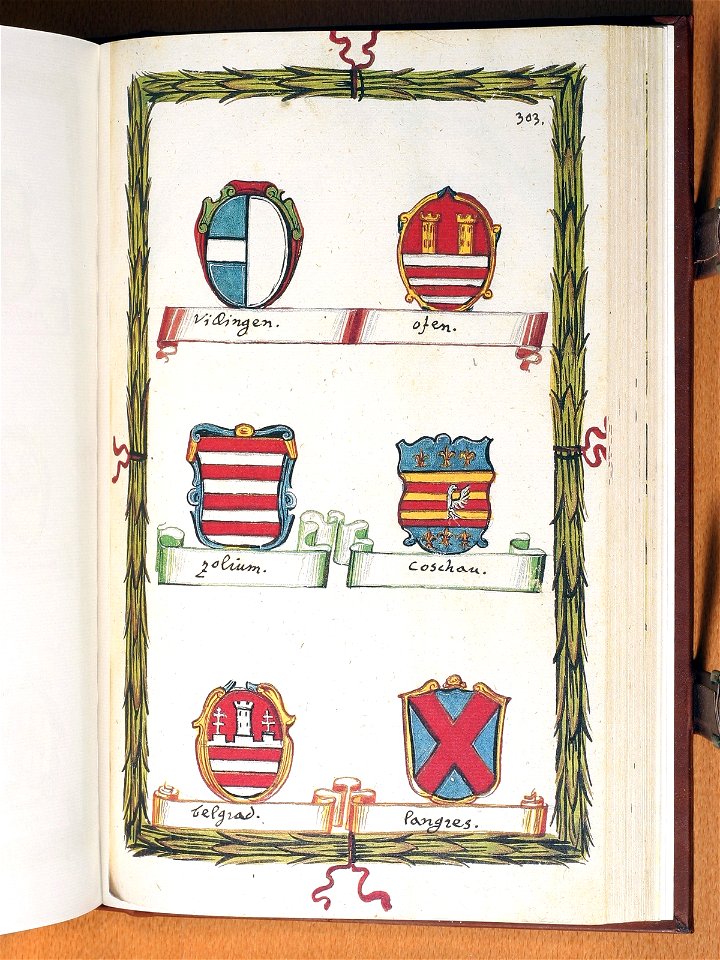 303.
Villingen.
ofen.
zolium.
Coschau.
belgrad.
langres.